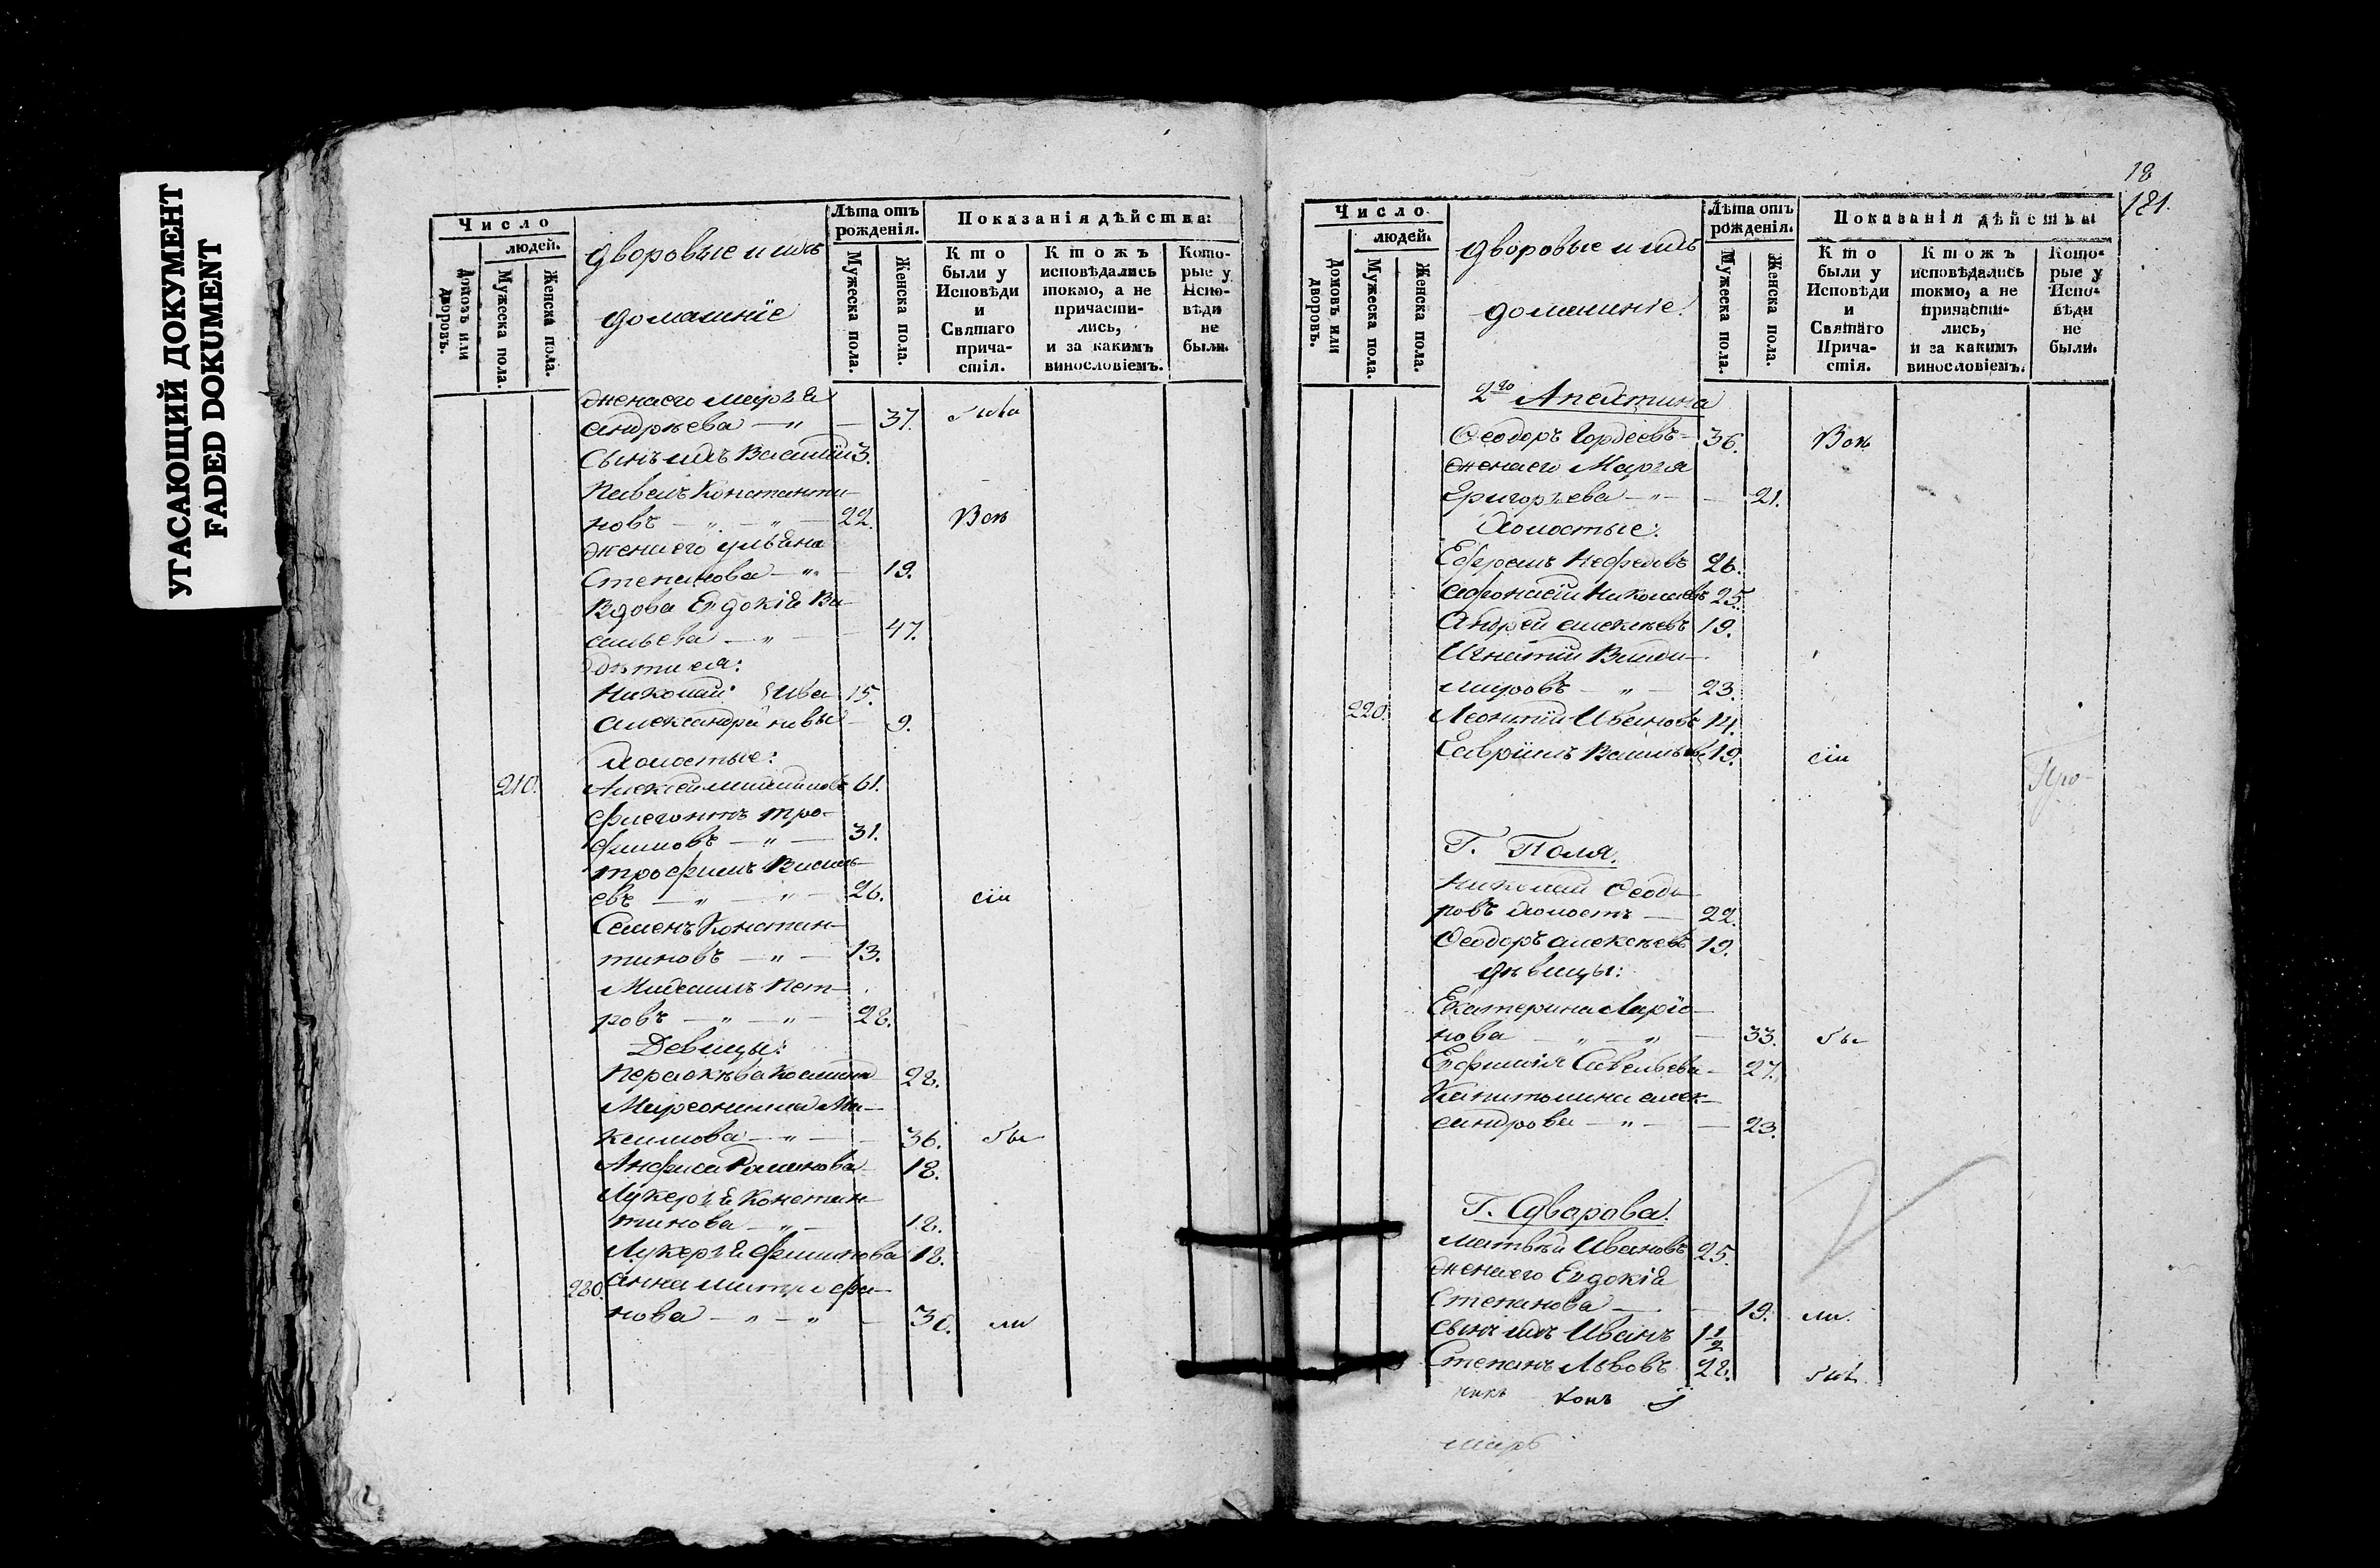 УГАСАЮЩИЙ ДОКУМЕНТ
FADED DOKUMENT
Число
людей.
Домовъ или дворовъ.
Мужеска пола.
Женска пола.
дворовые и ихъ
домашнїе
Лѣта отъ рожденія.
Мужеска пола.
Женска пола.
Показанія дѣйства:
Кто были у Исповѣди и Святаго причастія.
Ктожъ исповѣдались токмо, а не причастились, и за какимъ винословіемъ.
Которые у Исповѣди не были.
жена его Марїя
Андрѣева — " — 37.
Сынъ ихъ Василїй 3.
Павелъ Константи-
новъ — " — " — 22. Всѣ
жена его Ульяна
Степанова — " — 19.
Вдова Евдокїя Ва-
сильева — " — 47.
дѣти ея:
Николай Ива 15.
Александра новы 9.
холостые:
210. Алексѣй 61.
Флегонтъ Тро-
фимовъ — " — 31.
Трофимъ Василь-
евъ — " — " — 26. сїи
Семенъ Констан-
тиновъ — " — 13.
Михаилъ Пет-
ровъ — " — " — 28.
Девицы:
Параскѣва 28.
Ма-
ксимова — " — 36. бы
Анфиса Романова 18.
Лукерїя Констан-
тинова — " — 18.
Лукерїя Филипова 18.
280. Анна Митрофа-
нова — " — " — 30. ли
18
181.
Число
людей.
Домовъ или дворовъ.
Мужеска пола.
Женска пола.
дворовые и ихъ
домашнїе.
Лѣта отъ рожденія.
Мужеска пола.
Женска пола.
Показанія дѣйства:
Кто были у Исповѣди и Святаго Причастія.
Ктожъ исповѣдались токмо, а не причастились, и за какимъ винословіемъ.
Которые у Исповѣди не были.
2го Апехтина
Ѳеодоръ Гордеевъ — 36. Всѣ
жена его Марїя
Григорьева — " — 21.
Холостые:
Ефремъ Нефедовъ 26.
Афонасїй Николаевъ 25.
Андрей Алексѣевъ 19.
Игнатїй Влади-
мировъ — " — 23.
220. Леонтїй Ивановъ 14.
Гаврїилъ Васильевъ 19. сїи
Про-
Г. Поля.
Николай Ѳеодо-
ровъ холостъ — 22.
Ѳеодоръ Алексѣевъ 19.
дѣвицы:
Екатерина Ларїо-
нова — " — " — 33. бы
Евфимїя Савельева — 27.
Капитолина Алек-
сандрова — " — 23.
Г. Суварова.
Матвѣй Ивановъ 25.
жена его Евдокїя
Степанова — 19. ли.
сынъ ихъ Иванъ 1½
Степанъ Львовъ 28.
конъ